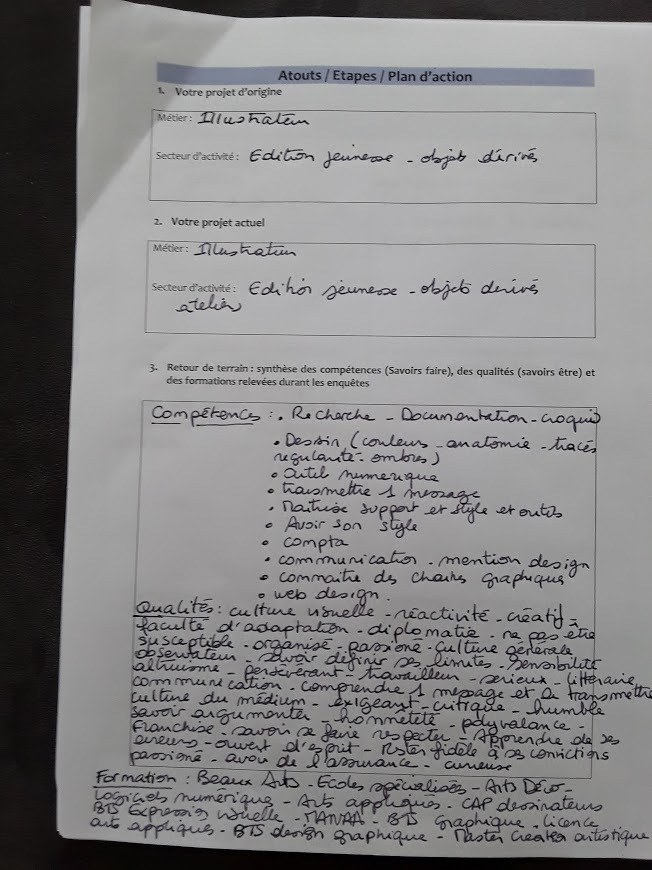 Atouts / Etapes / Plan d'action
1. Votre projet d'origine
Métier : Illustrateur
Secteur d'activité : Edition jeunesse - objets dérivés
2. Votre projet actuel
Métier : Illustrateur
Secteur d'activité : Edition jeunesse - objets dérivés
ateliers
3. Retour de terrain : synthèse des compétences (Savoirs faire), des qualités (savoirs être) et
des formations relevées durant les enquêtes
Compétences : . Recherche - Documentation - croquis
• Dessin (couleurs - anatomie - tracés
régularité - ombres)
• outil numérique
• transmettre 1 message
• Maitrise support et style et outils
• Avoir son style
• compta
• communication - mention design
• connaitre des chartes graphiques
• web design.
Qualités : culture visuelle - réactivité - créatif -
faculté d'adaptation - diplomatie - ne pas être
susceptible - organisé - passionné - culture générale
observateur - savoir définir ses limites - sensibilité
altruisme - persévérant - travailleur - sérieux - littéraire
communication - comprendre 1 message et le transmettre
culture du médium - exigeant - critique - humble
savoir argumenter - honnêteté - polyvalance -
Franchise - savoir se faire respecter - Apprendre de ses
erreurs - ouvert d'esprit - Rester fidèle à ses convictions
passionné - avoir de l'assurance - curieuse
Formation : Beaux Arts - Ecoles spécialisées - Arts Déco -
Logiciels numérique - Arts appliqués - CAP dessinateurs
BTS Expression visuelle - MANAA - BTS graphique - licence
arts appliqués - BTS design graphique - Master création artistique